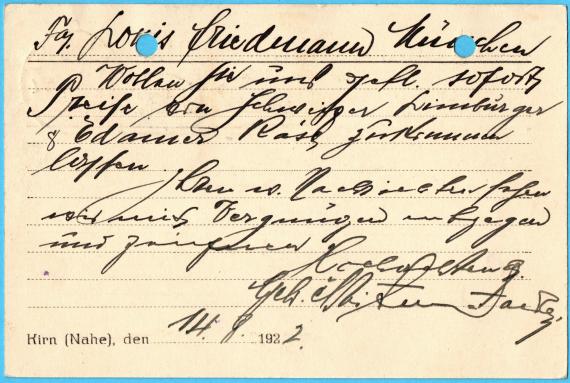 Fa. Louis Friedemann München
Wollen Sie uns gefl. sofort
Preise von Schweizer Limburger
& Edamer Käse zukommen
lassen
Ihren w. Nachrichten sehen
wir mit Vergnügen entgegen
und zeichnen
Hochachtend
Gebr.
Kirn (Nahe), den 14. 8. 1922.